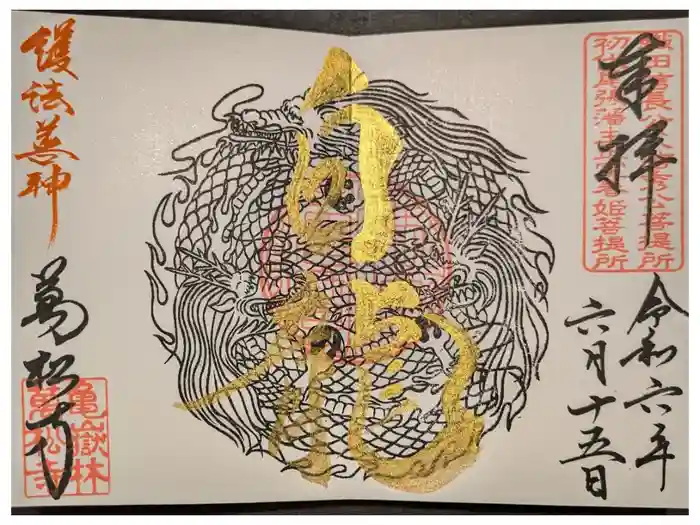 奉拝
織田信長公父信秀公菩提所
初代尾張藩主 春姫菩提所
令和六年
六月十五日
白龍
護法善神
萬松寺
亀嶽林
萬松寺